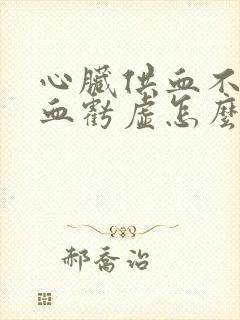 心臟供血不
血虧虛怎麼
郝喬治